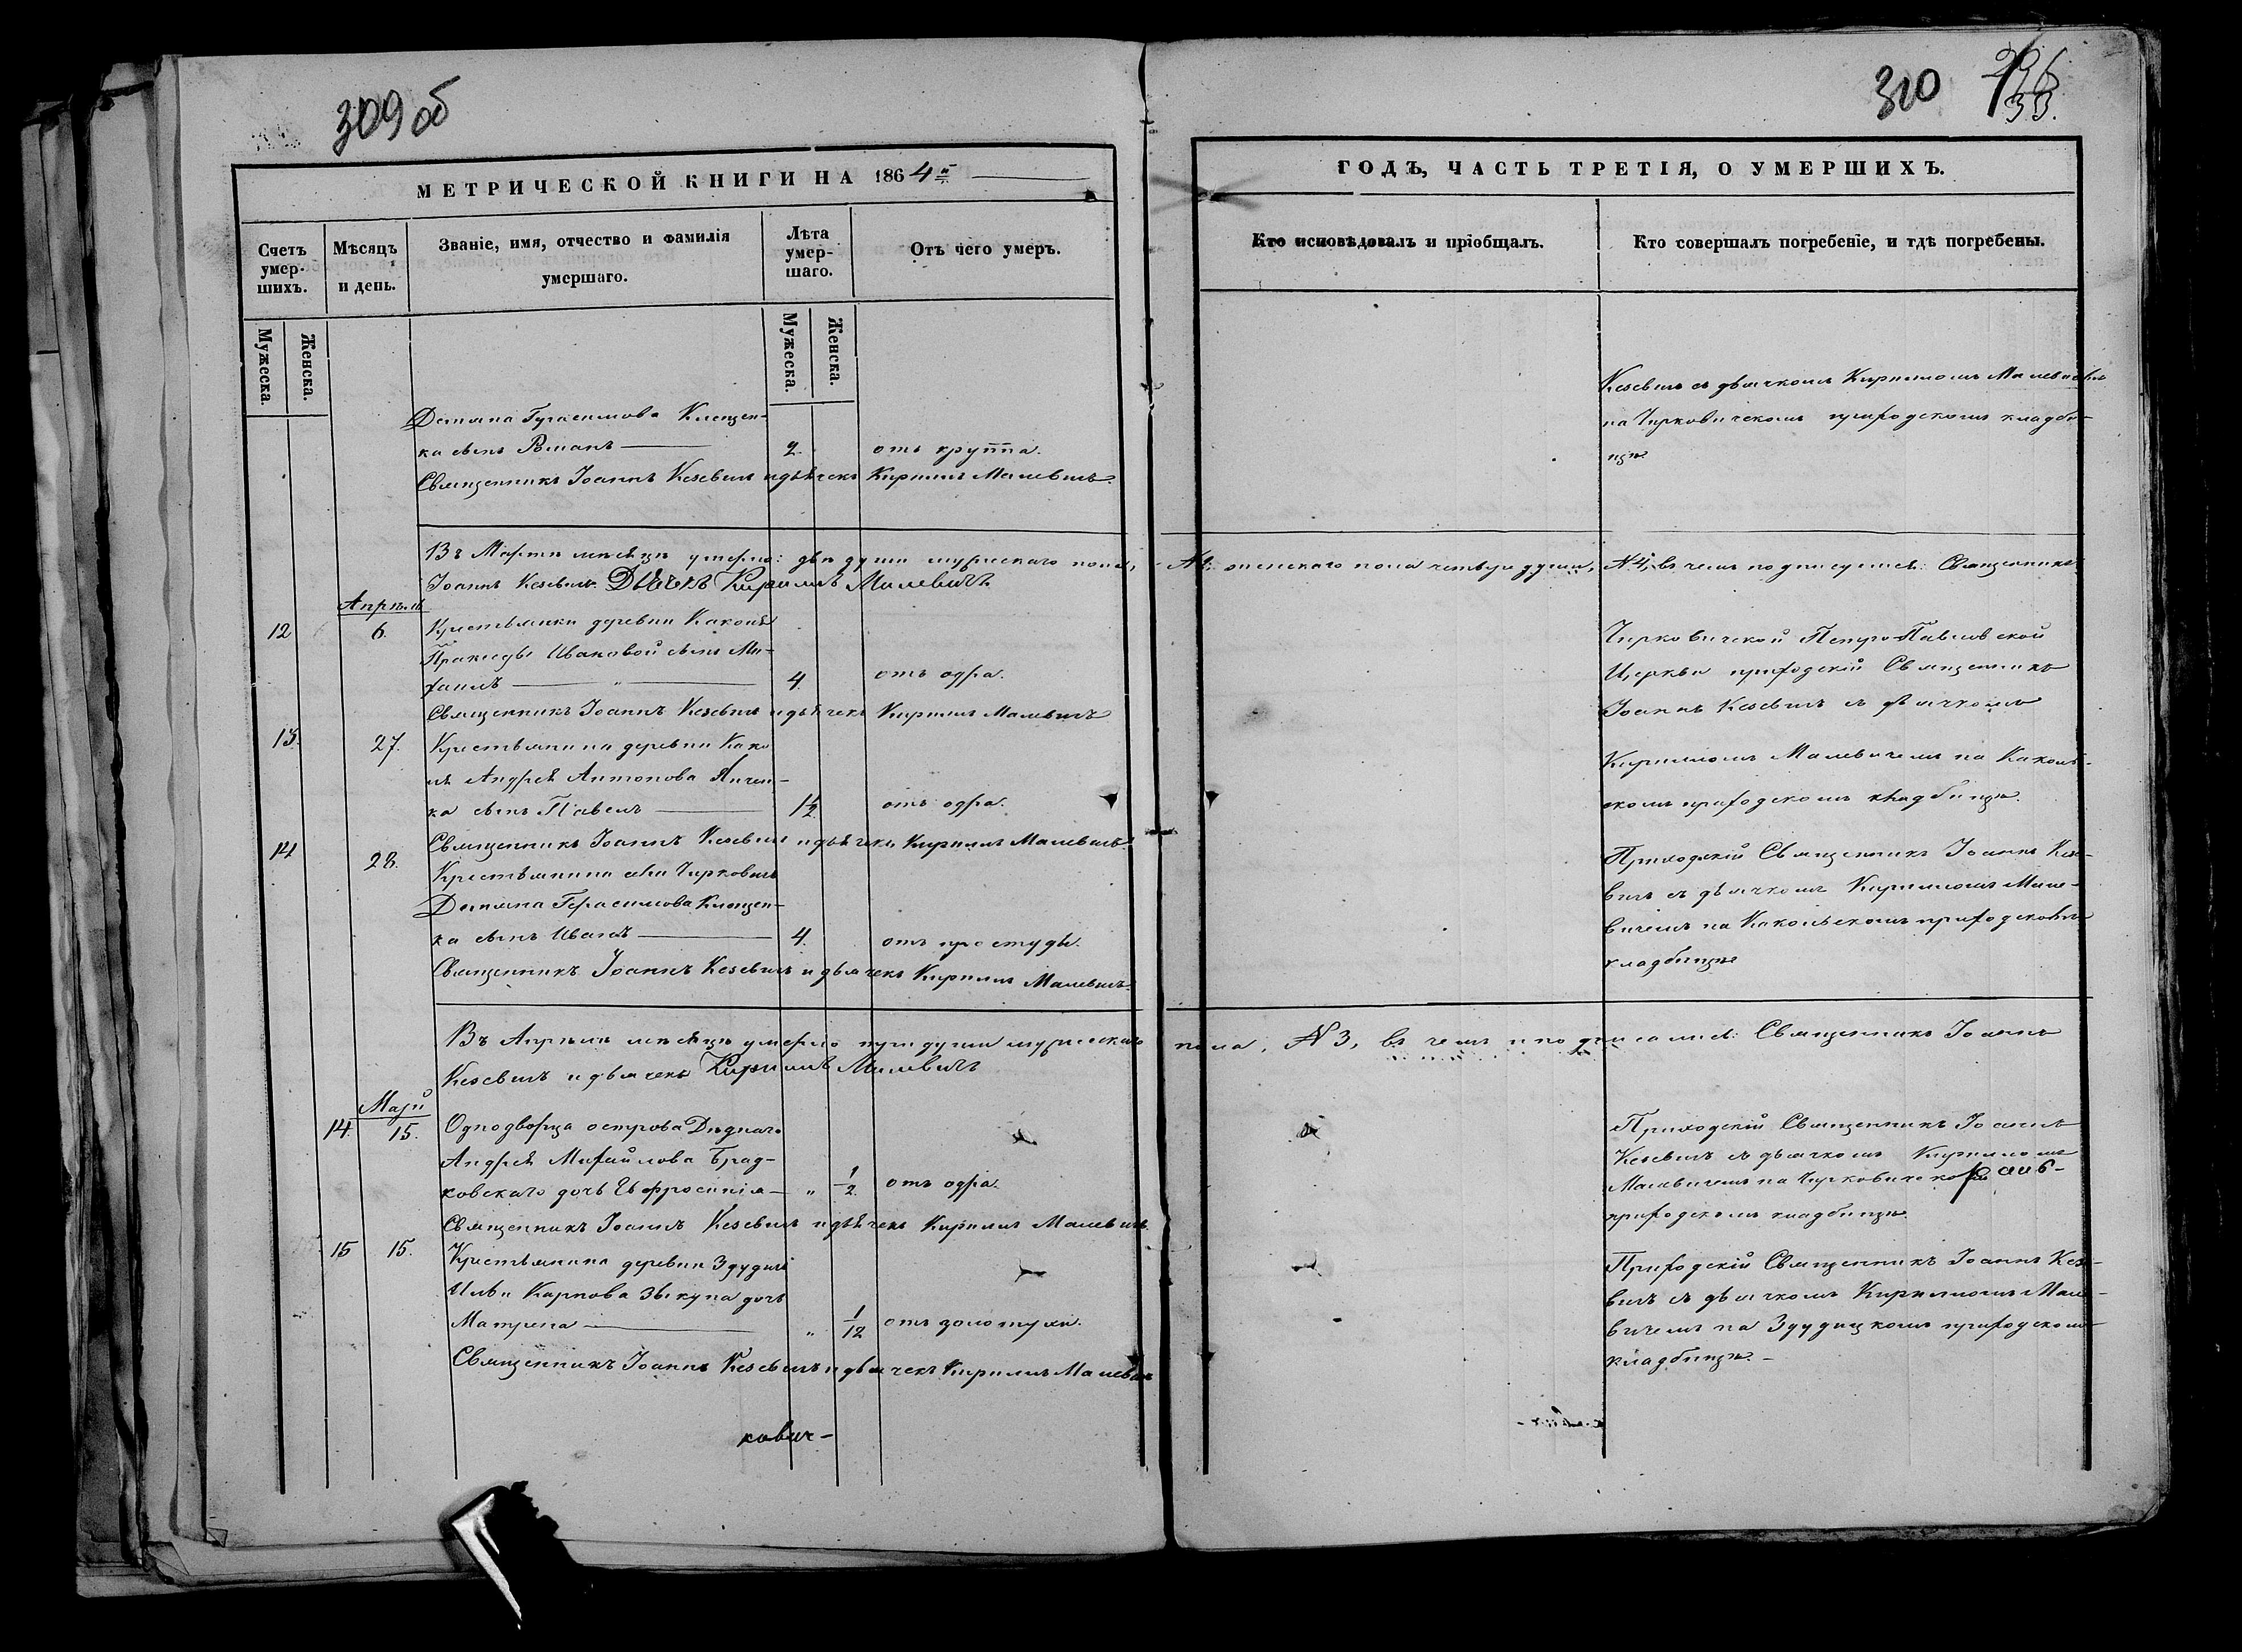 309 об
МЕТРИЧЕСКОЙ КНИГИ НА 1864й
Счетъ умер-шихъ.
Мѣсяцъ и день.
Званіе, имя, отчество и фамилія умершаго.
Лѣта умер-шаго.
Отъ чего умеръ.
Мужеска.
Женска.
Мужеска.
Женска.
Демяна Гугасимова Клещен-
ка сынъ Романъ 2. отъ круппа.
Священникъ Іоаннъ Кезевичъ и дьячекъ Кирилъ Малевичъ.
Въ Мартѣ мѣсяцѣ умерло: двѣ души мужескаго пола,
Іоаннъ Кезевичъ. Дьячекъ Кирилъ Малевичъ
Апрѣль
12 6. Крестьянки деревни Каколь
Пракседы Ивановой сынъ Ми-
хаилъ 4. отъ одра.
Священникъ Іоаннъ Кезевичъ и дьячекъ Кирилъ Малевичъ
13. 27. Крестьянина деревни Како
ль Андрея Антонова Янчен-
ка сынъ Павелъ 1½ отъ одра.
Священникъ Іоаннъ Кезевичъ и дьячекъ Кирилъ Малевичъ.
14 28. Крестьянина села Чирковичъ
Демяна Герасимова Клещен-
ка сынъ Иванъ 4. отъ простуды.
Священникъ Іоаннъ Кезевичъ и дьячекъ Кирилъ Малевичъ.
Въ Апрѣлѣ мѣсяцѣ умерло три души мужескаго
Кезевичъ и дьячекъ Кирилъ Малевичъ
Май
14. 15. Однодворца острова
Андрея Михайлова Брад-
ковскаго дочь Ефросинія " 1/2. отъ одра.
Священникъ Іоаннъ Кезевичъ и дьячекъ Кирилъ Малевичъ
15 15. Крестьянина деревни Здудичь
Ильи Карпова Зыкуна дочь
Матрена " 1/12 отъ золотухи.
Священникъ Іоаннъ Кезевичъ и дьячекъ Кирилъ Малевичъ
кович-
310
33.
ГОДЪ, ЧАСТЬ ТРЕТІЯ, О УМЕРШИХЪ.
Кто исповѣдовалъ и пріобщалъ.
Кто совершалъ погребеніе, и гдѣ погребены.
Кезевичъ съ дьячкомъ Кириломъ Малевичемъ
на Чирковичскомъ приходскомъ кладби-
щѣ
женскаго пола четыре души, №4, въ чемъ подписуемся: Священникъ
Чирковичской Петро-Павловской
Церкви приходскій Священникъ
Іоаннъ Кезевичъ съ дьячкомъ
Кириломъ Малевичемъ на Каколь-
скомъ приходскомъ кладбищѣ.
Приходскій Священникъ Іоаннъ Кезе-
вичъ съ дьячкомъ Кириломъ Мале-
вичемъ на Какольскомъ приходскомъ
кладбищѣ
пола, №3, въ чемъ и подписалися: Священникъ Іоаннъ
Приходскій Священникъ Іоаннъ
Кезевичъ съ дьячкомъ Кириломъ
Малевичемъ на Чирковичском
приходскомъ кладбищѣ.
Приходскій Священникъ Іоаннъ Кезе-
вичъ съ дьячкомъ Кириломъ Мале-
вичемъ на Здудицкомъ приходскомъ
кладбищѣ.